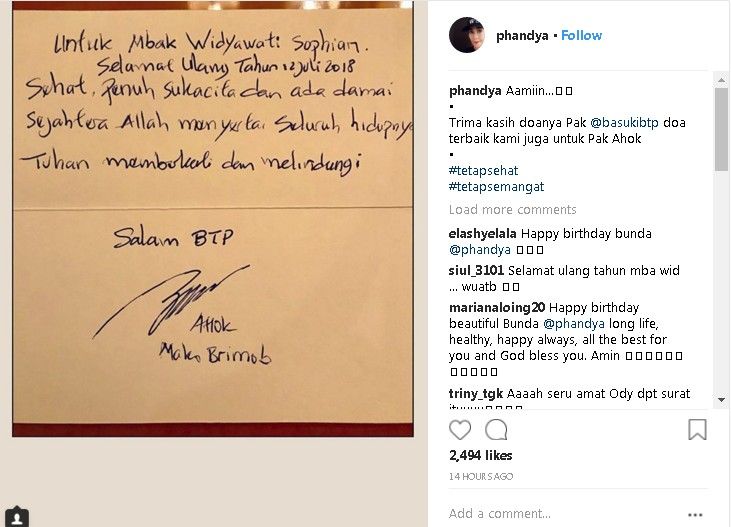 Untuk Mbak Widyawati Sophian.
Selamat Ulang Tahun 12 Juli 2018
Sehat, Penuh sukacita dan ada damai
Sejahtera Allah menyertai Seluruh hidupnya
Tuhan memberkati dan melindungi
Salam BTP
AHOK
Mako Brimob
phandya • Follow
phandya Aamiin...
•
Trima kasih doanya Pak @basukibtp doa
terbaik kami juga untuk Pak Ahok
•
#tetapsehat
#tetapsemangat
Load more comments
elashyelala Happy birthday bunda
@phandya
siul_3101 Selamat ulang tahun mba wid
... wuatb
marianaloing20 Happy birthday
beautiful Bunda @phandya long life,
healthy, happy always, all the best for
you and God bless you. Amin
triny_tgk Aaaah seru amat Ody dpt surat
2,494 likes
14 HOURS AGO
Add a comment...